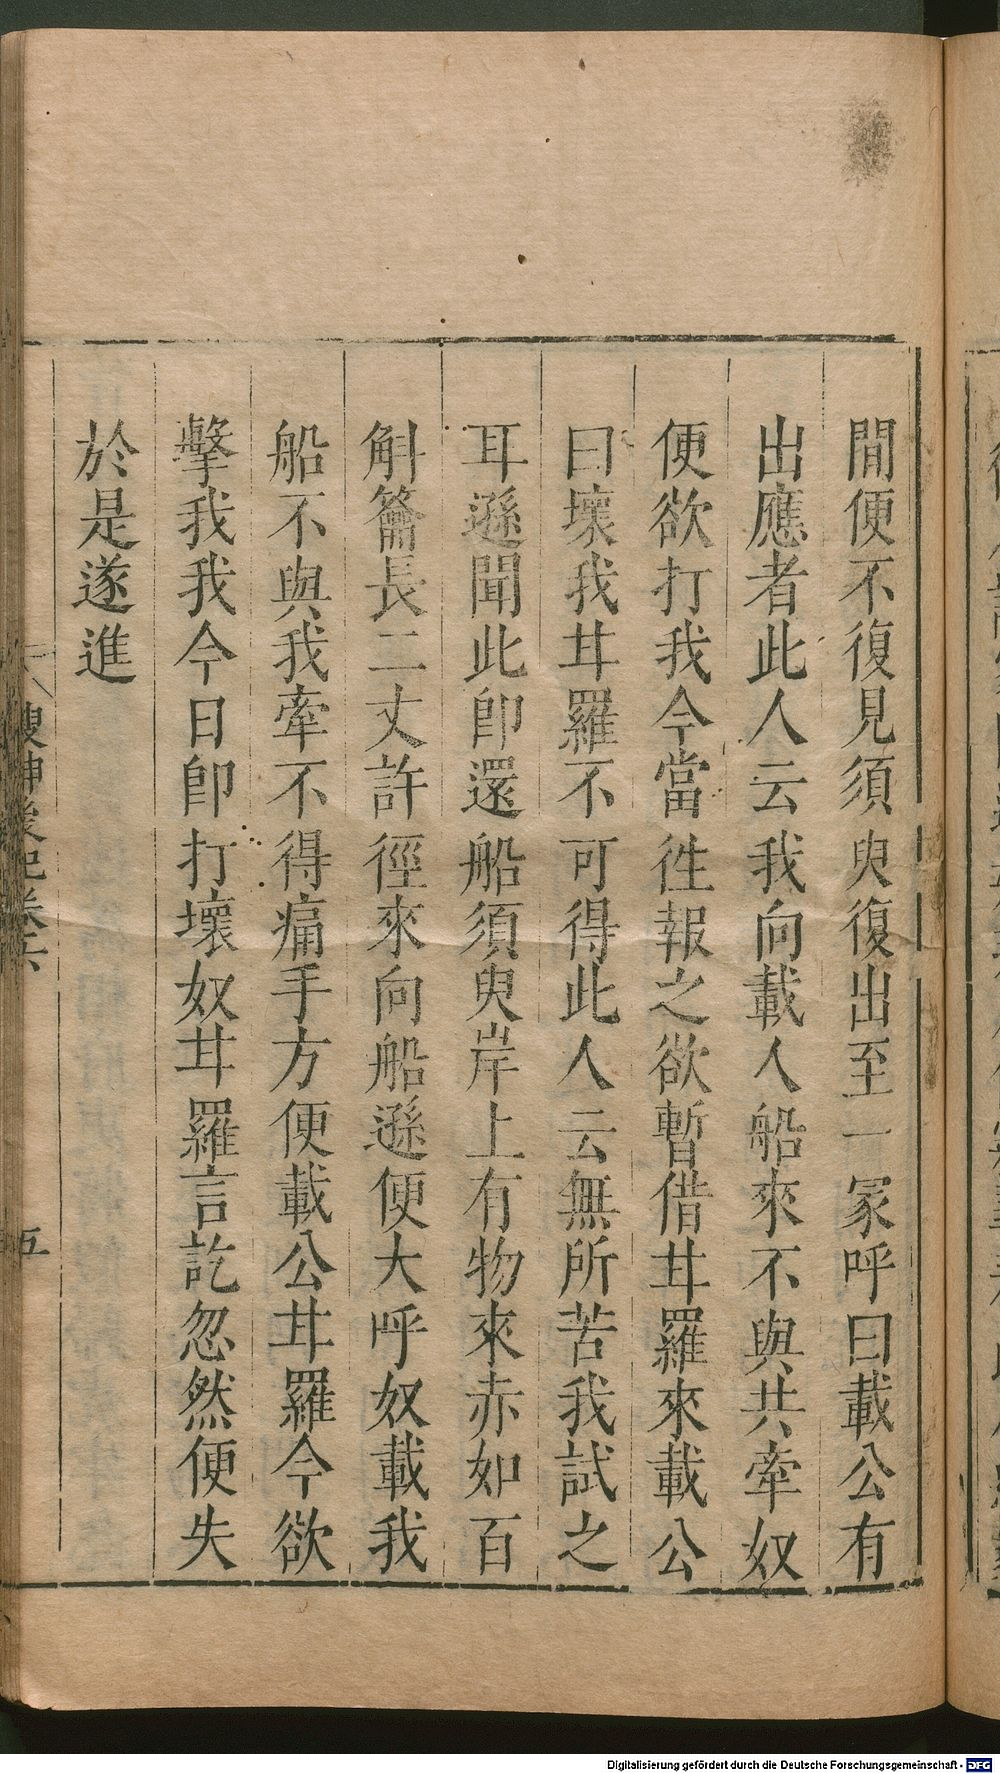 間便不復見須臾復出至一冢呼曰載公有
出應者此人云我向載人船來不與共牽奴
便欲打我今當徃報之欲暫借甘羅來載公
曰壞我甘羅不可得此人云無所苦我試之
耳遜聞此卽還船須臾岸上有物來赤如百
斛籥長二丈許徑來向船遜便大呼奴載我
船不與我牽不得痛手方便載公甘羅今欲
擊我我今日卽打壞奴甘羅言訖忽然便失
於是遂進
搜神後記卷六
五
Digitalisierung gefördert durch die Deutsche Forschungsgemeinschaft - DFG